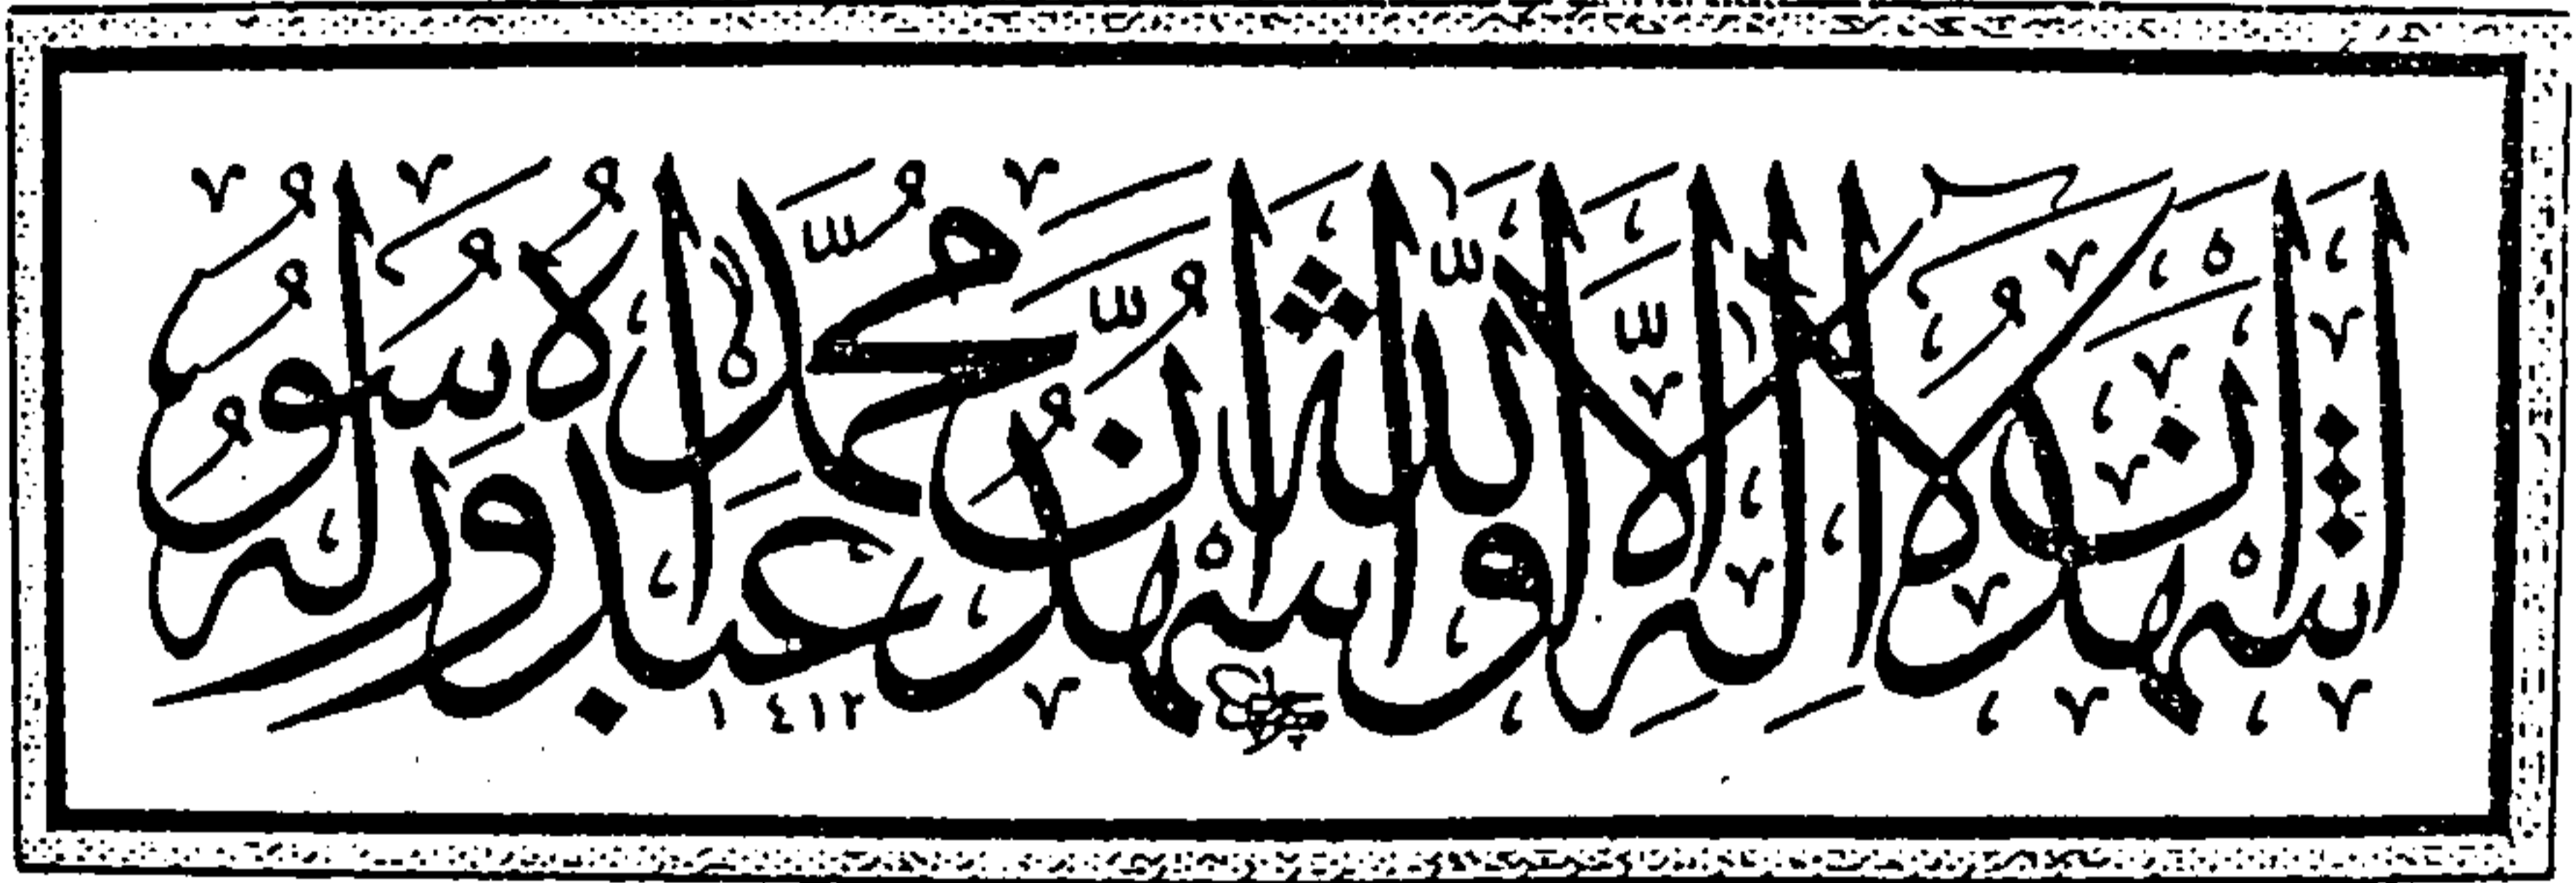 أَشْهَدُ أَنْ لَا إِلَٰهَ إِلَّا اللَّهُ وَأَشْهَدُ أَنَّ مُحَمَّدًا عَبْدُهُ وَرَسُولُهُ
١٤١٢